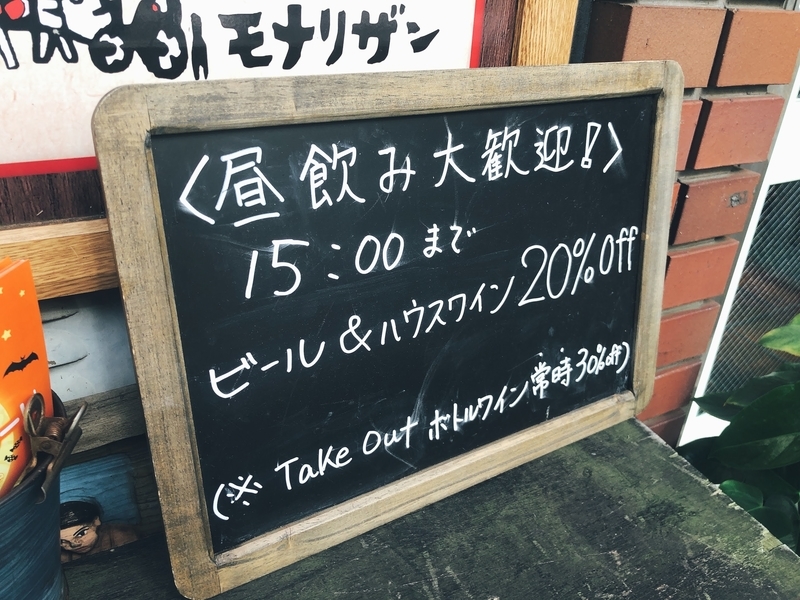 モナリザン
〈昼飲み大歓迎!〉
15:00まで
ビール&ハウスワイン20%Off
(※ Take Out ボトルワイン常時30%off)